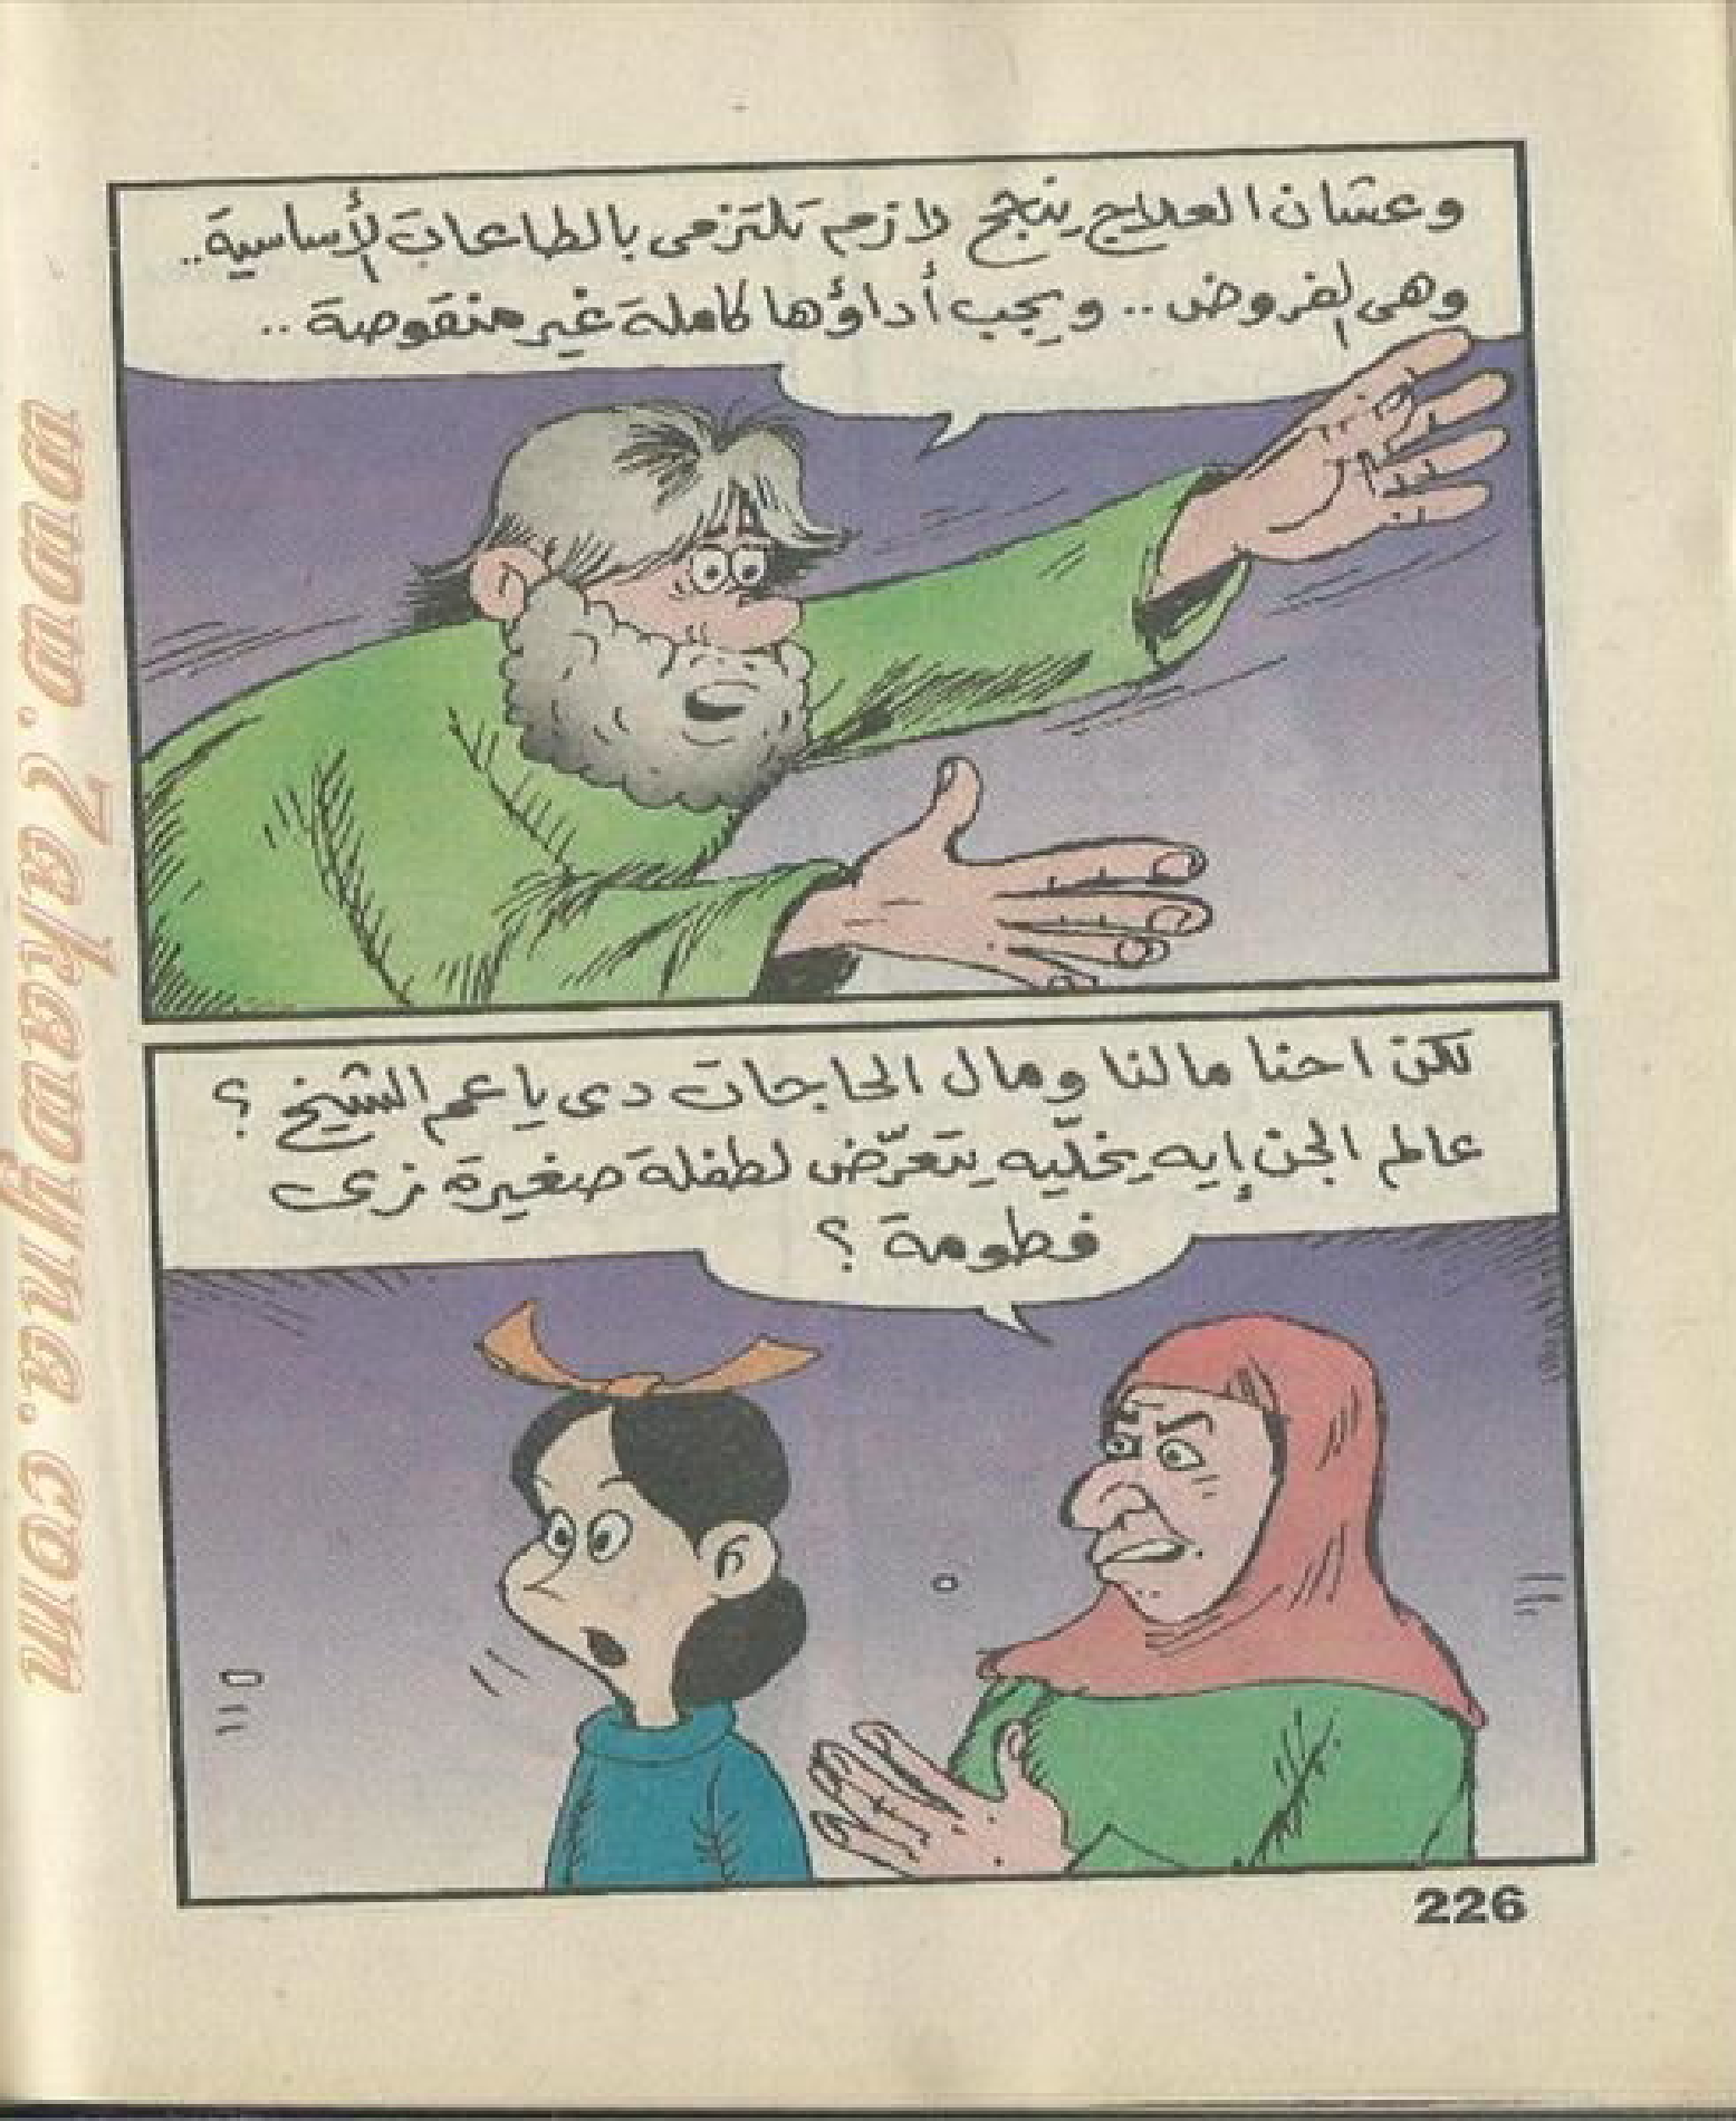 وعشان العلاج ينجح لازم تلتزمى بالطاعات الأساسية..
وهى الفروض.. ويجب أداؤها كاملة غير منقوصة..
لكن احنا مالنا ومال الحاجات دى يا عم الشيخ؟
عالم الجن إيه يخلّيه يتعرّض لطفلة صغيرة زى
فطومة؟
226